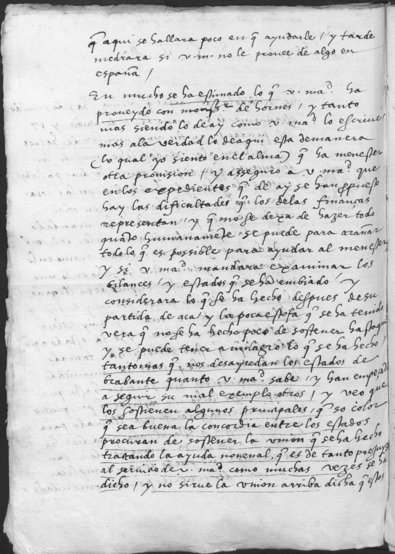 q̃ aqui se hallara poco en q̃ ayudarle / y tarde
medrara si v. m. no le provee de algo en
españa /
En mucho se ha estimado lo q̃ v. ma.^d ha
proveydo con mons.^r de hornes, y tanto
mas siendo lo de ay como v. ma.^d lo escrive
mas ala verdad lo de aqui esta de manera
(lo qual yo siento en el alma) q̃ ha menester
otra provision / y asseguro a v. ma.^d que
en los expedientes q̃ de ay se han propuesto
hay las dificultades q̃ los delas finanças
representan / y q̃ no se dexa de hazer todo
quãto humanamẽte se puede para arañar
todo lo q̃ es possible para ayudar al menester
y si v. ma.^d mandara examinar los
bilances / y estados q̃ se han embiado / y
considerara lo q̃ se ha hecho despues de su
partida de aca / y la poca estofa q̃ se ha tenido
vera q̃ no se ha hecho poco de sostener hasta aqui
y se puede tener a milagro lo q̃ se ha hecho
tanto mas q̃ nos desayudan los estados de
brabante quanto v. ma.^d sabe / y han empeçado
a seguir su mal exemplo otros / y veo que
los sostienen algunos principales / q̃ so color
q̃ sea buena la concordia entre los estados
procuran de sostener la union q̃ se ha hecho
tractando la ayuda novenal, q̃ es de tanto prejuyzio
al servicio de v. ma.^d como muchas vezes se ha
dicho / y no sirve la union arriba dicha q̃ estos